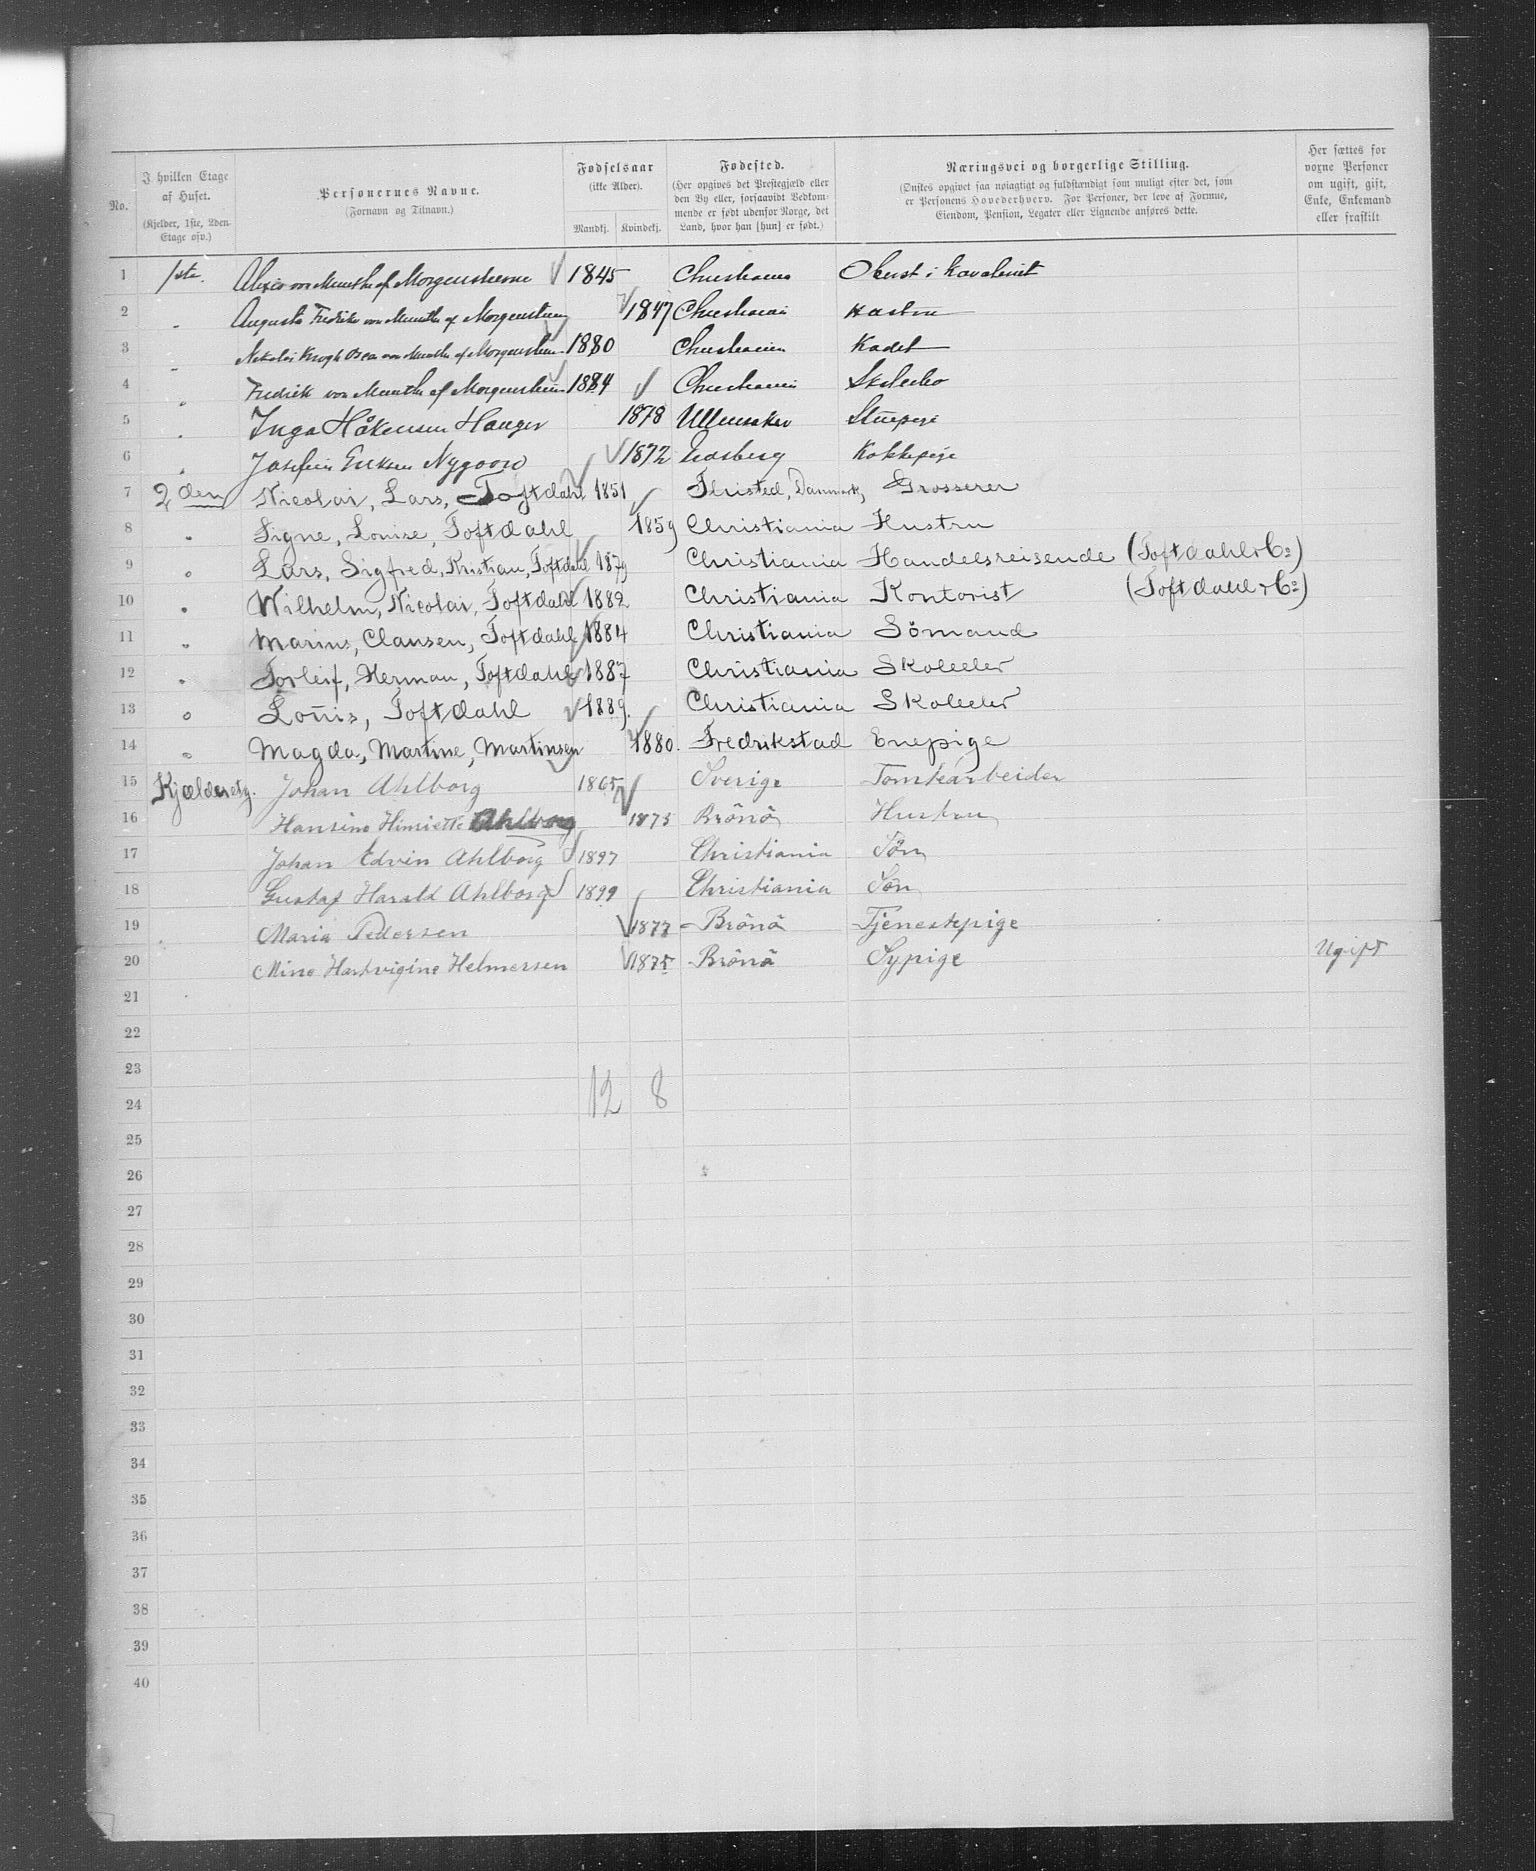 No.
I hvilken Etage af Huset.
(Kjelder, 1ste, 2den Etage osv.)
Personernes Navne.
(Fornavn og Tilnavn.)
Fødselsaar
(ikke Alder).
Mandkj. Kvindekj.
Fødested.
(Her opgives det Prestegjæld eller
den By eller, forsaavidt Vedkom-
mende er født udenfor Norge, det
Land, hvor han [hun] er født.)
Næringsvei og borgerlige Stilling.
(Ønskes opgivet saa nøiagtigt og fuldstændigt som muligt efter det, som
er Personens Hovederhverv. For Personer, der leve af Formue,
Eiendom, Pension, Legater eller Lignende anføres dette.
Her sættes for
voxne Personer
om ugift, gift,
Enke, Enkemand
eller fraskilt
1 1ste. von Munthe af Morgenstierne 1845 Christiania Oberst i Kavaleriet
2 " Augusta Fredrikke von Munthe af Morgenstierne 1847 Christiania Hustru
3 " Nikolai Krogh von Munthe af Morgenstierne 1880 Christiania Kadet
4 " Fredrik von Munthe af Morgenstierne 1884 Christiania
5 " Inga Håkensen Hauger 1878 Ullensaker Stuepige
6 " Josefin Eriksen Nygaard 1872 Kokkepige
7 2den Nicolai, Lars, Toftdahl 1851 Danmark, Grosserer
8 " Signe, Louise, Toftdahl 1859 Christiania Hustru
9 " Lars, Sigfred, Kristian, Toftdahl 1879 Christiania Handelsreisende (Toftdahl & Co:)
10 " Wilhelm, Nicolai, Toftdahl 1882 Christiania Kontorist (Toftdahl & Co:)
11 " Marius, Clausen, Toftdahl 1884 Christiania Sömand
12 " Torleif, Herman, Toftdahl 1887 Christiania Skoleelev
13 " Louis, Toftdahl 1889. Christiania Skoleelev
14 " Magda, Martine, Martinsen 1880. Fredrikstad Enepige
15 Kjælderetg. Johan Ahlborg 1865 Sverige Tomtearbeider
16 Hansine Henriette Ahlborg 1875 Brönö Hustru
17 Johan Edvin Ahlborg 1897 Christiania Sön
18 Gustaf Harald Ahlborg 1899 Christiania Sön
19 Maria Pedersen 1877 Brönö Tjenestepige
20 Mine Hartvigine Helmersen 1875 Brönö Sypige Ugift
21
22
23
12 8
24
25
26
27
28
29
30
31
32
33
34
35
36
37
38
39
40